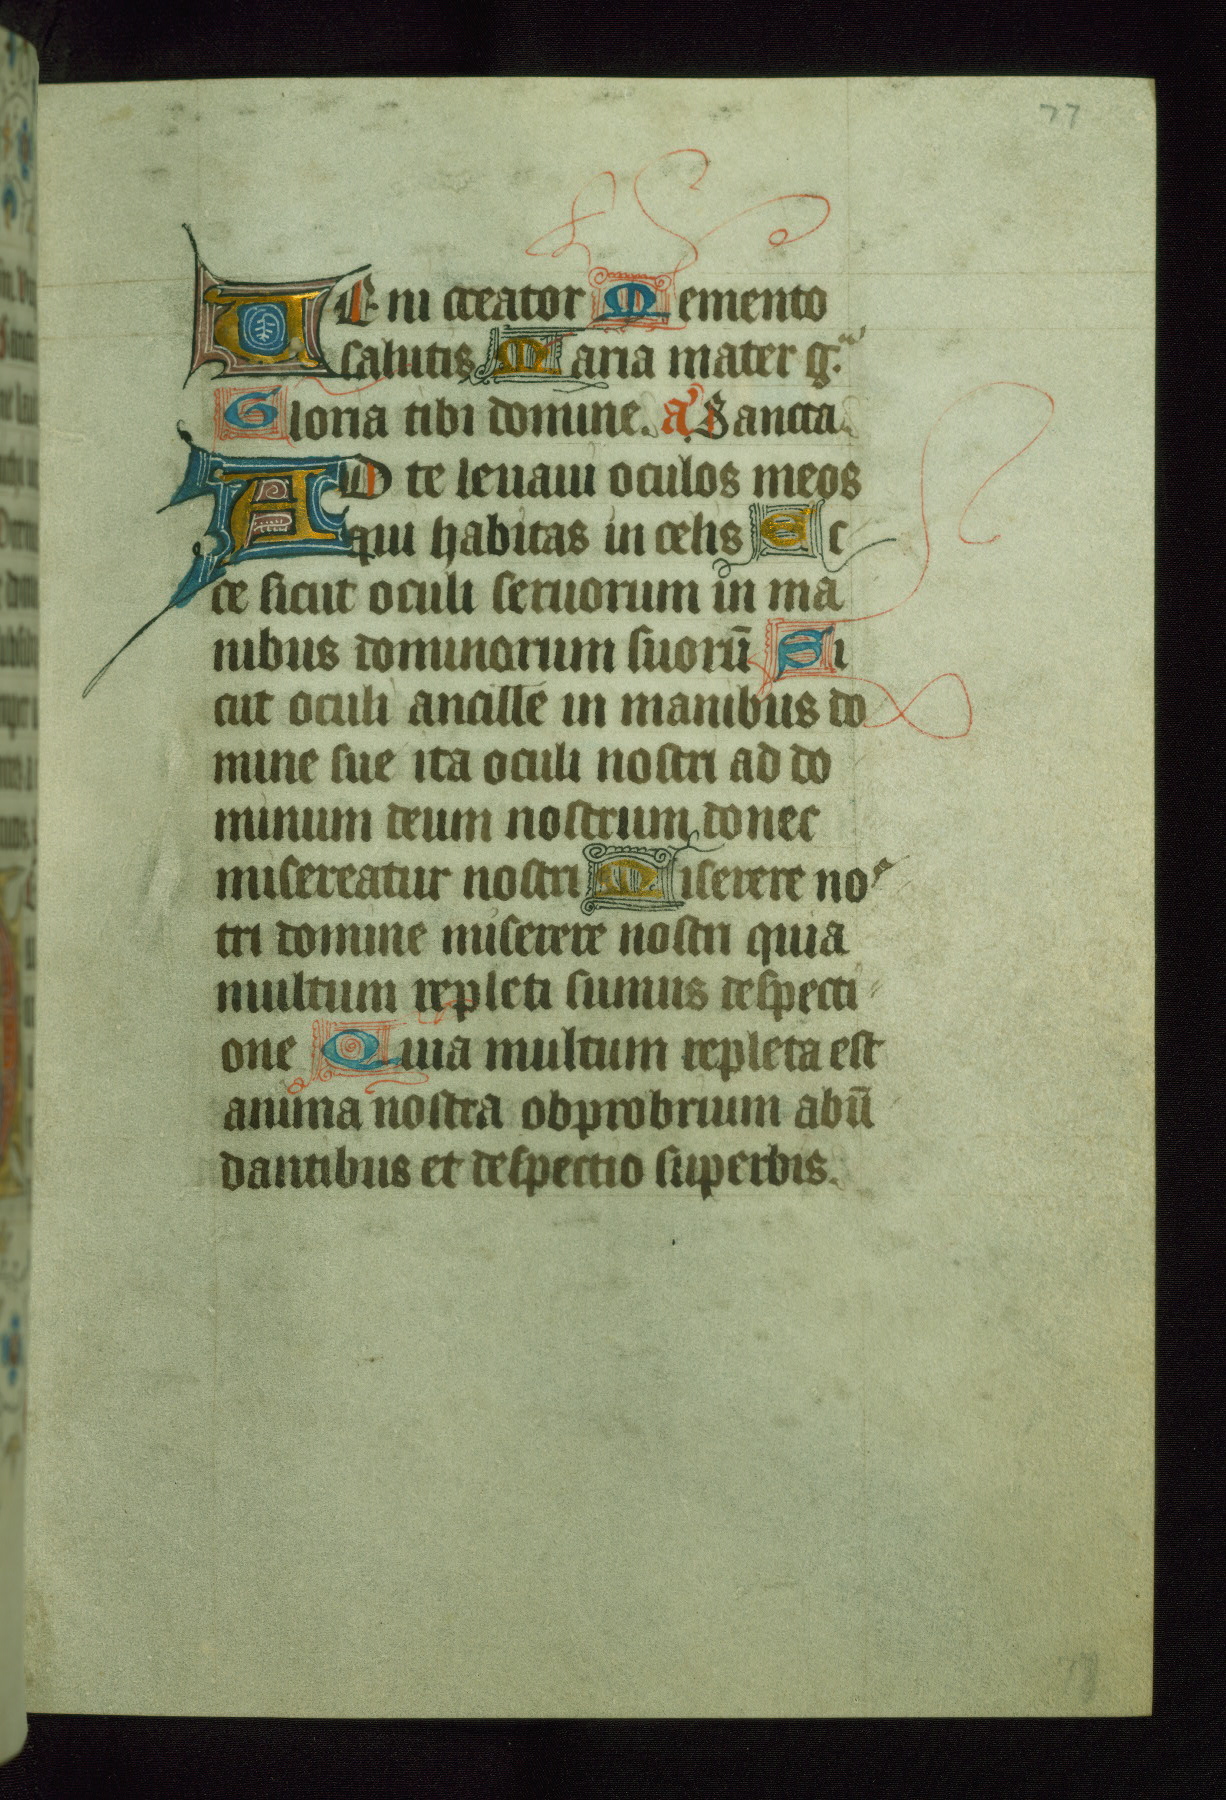 77
VEni creator Memento
salutis Maria mater g.
Gloria tibi domine. a' Sancta
AD te leuaui oculos meos
qui habitas in celis Ec
ce sicut oculi seruorum in ma
nibus dominorum suorū Si
cut oculi ancille in manibus do
mine sue ita oculi nostri ad do
minum deum nostrum donec
misereatur nostri Miserere nos
tri domine miserere nostri quia
multum repleti sumus despecti
one Quia multum repleta est
anima nostra obprobrium abū
dantibus et despectio superbis.